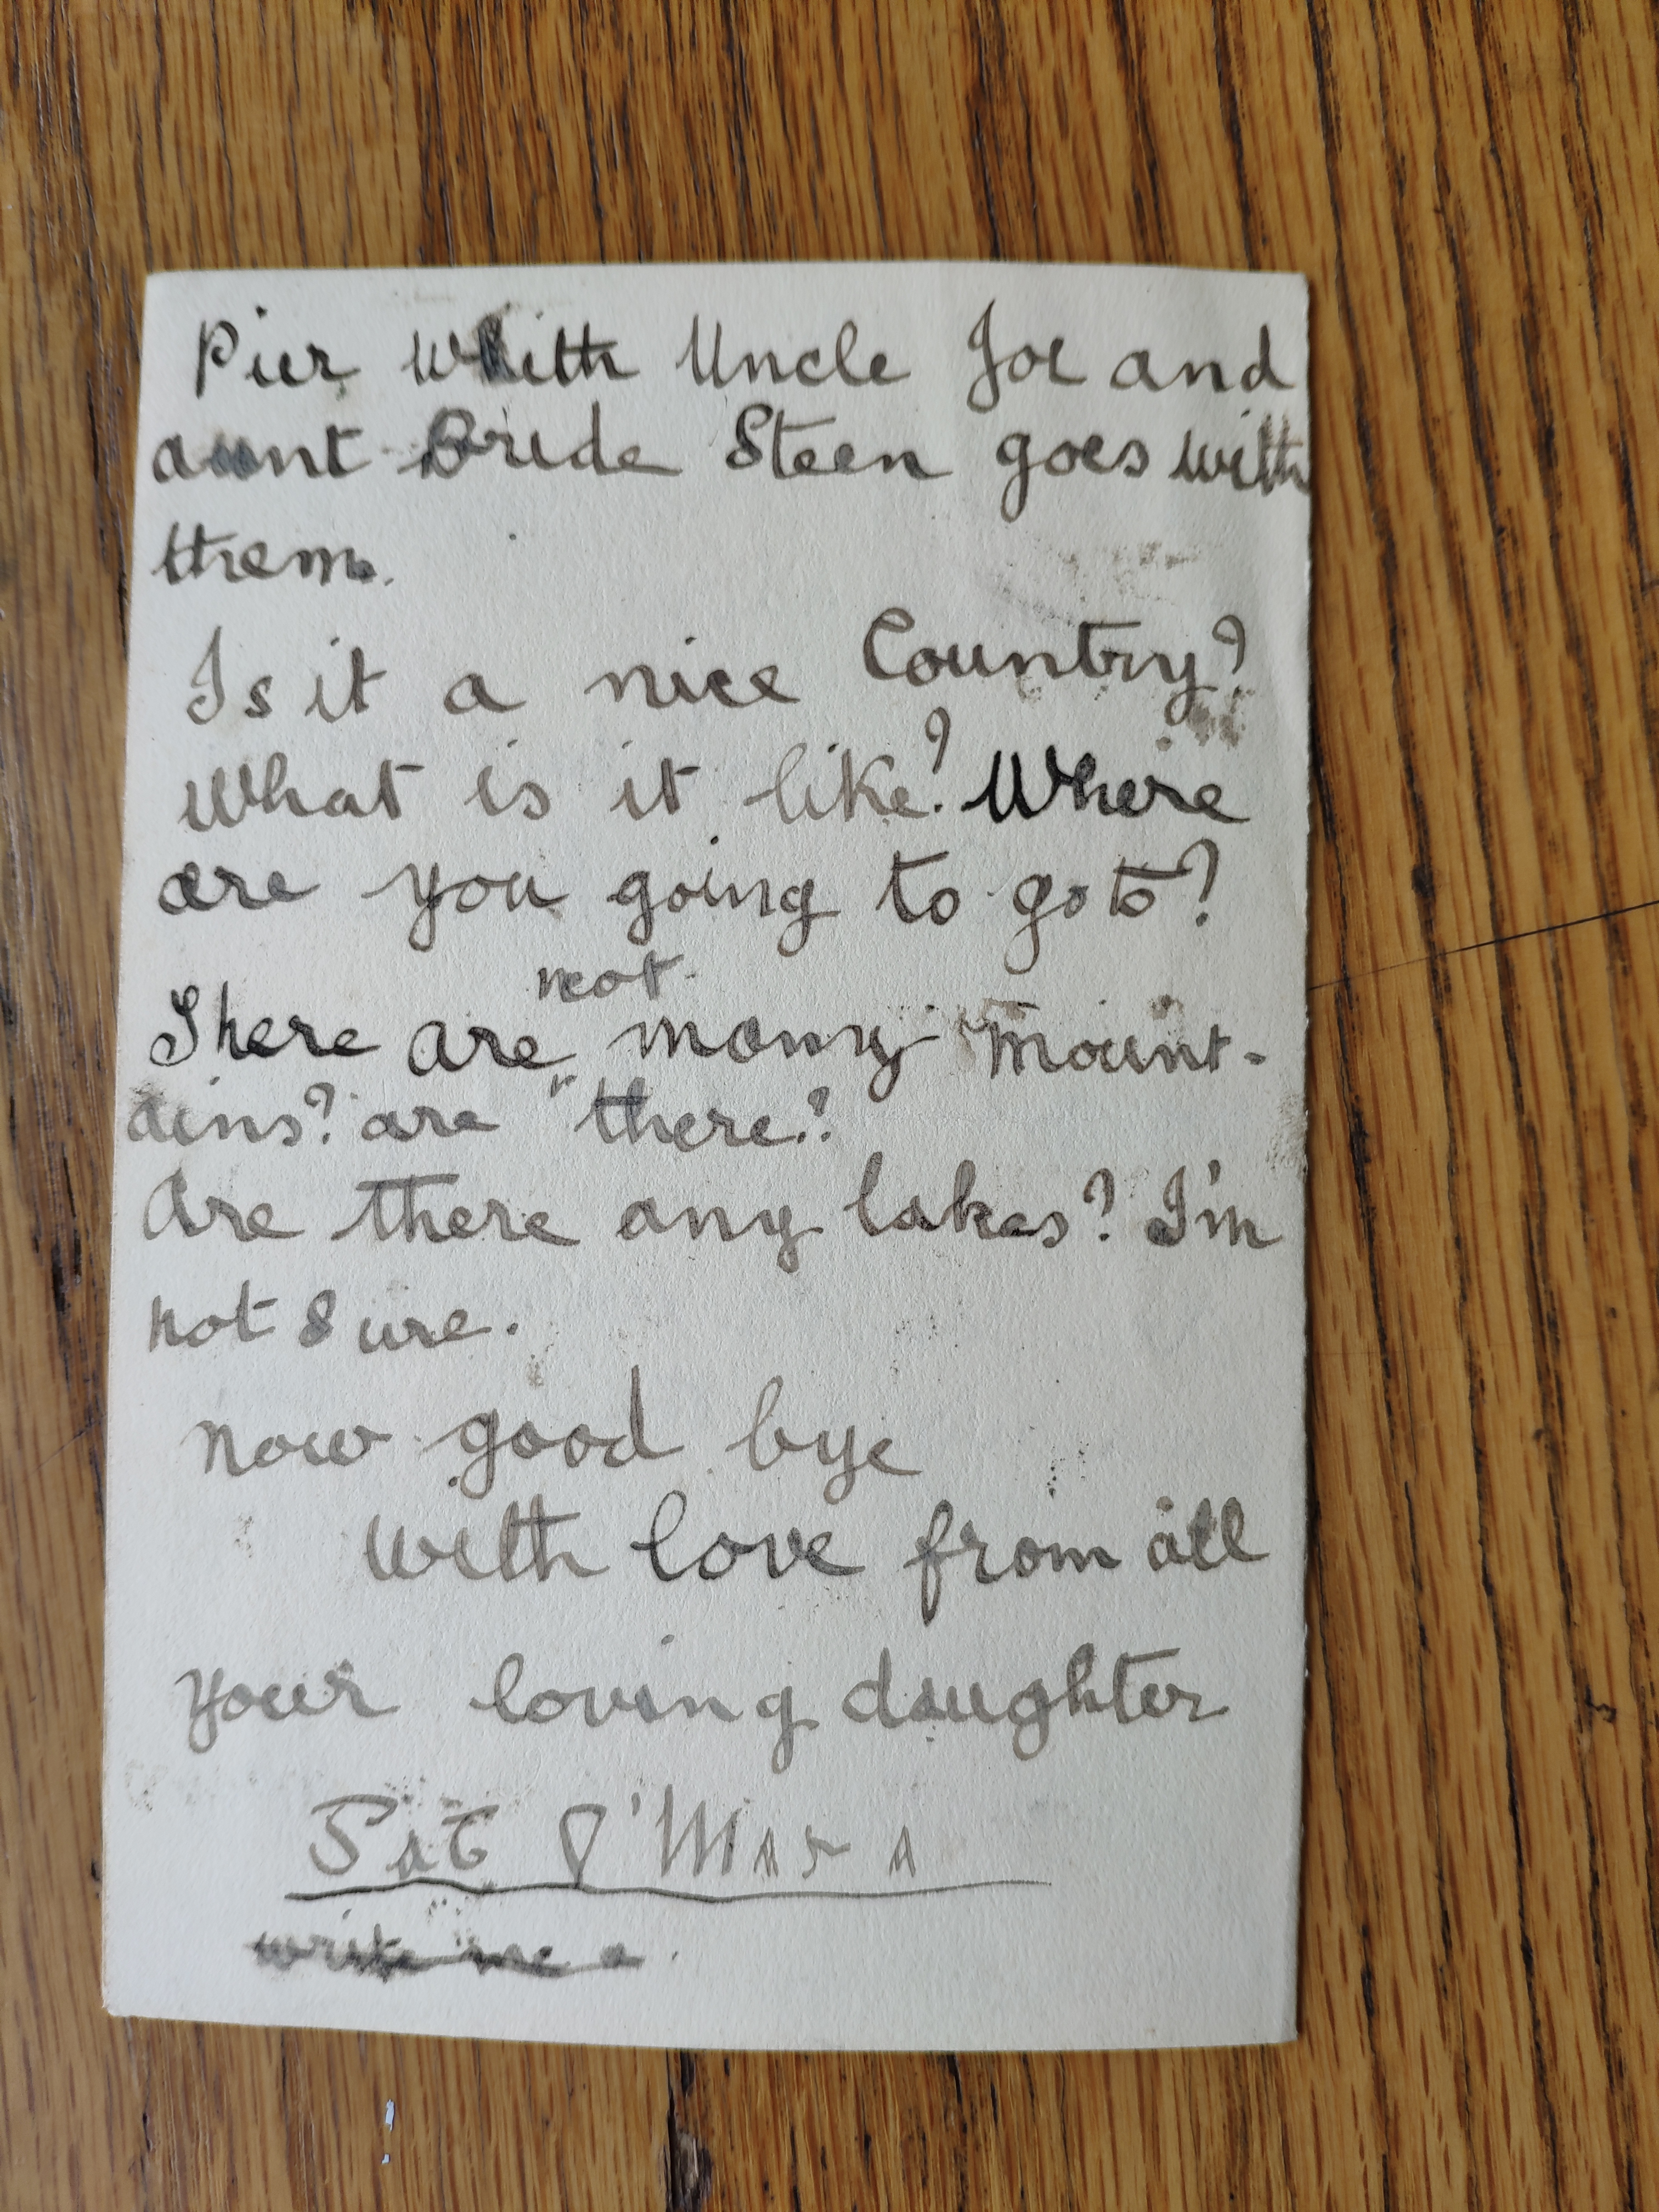 Pier with Uncle Joe and
aunt Bride Steen goes with
them.
Is it a nice Country?
What is it like? Where
are you going to go to?
not
There are many mount-
ains? are there?
Are there any lakes? I'm
not sure.
now good bye
with love from all
your loving daughter
Pat O'Mara
write me a